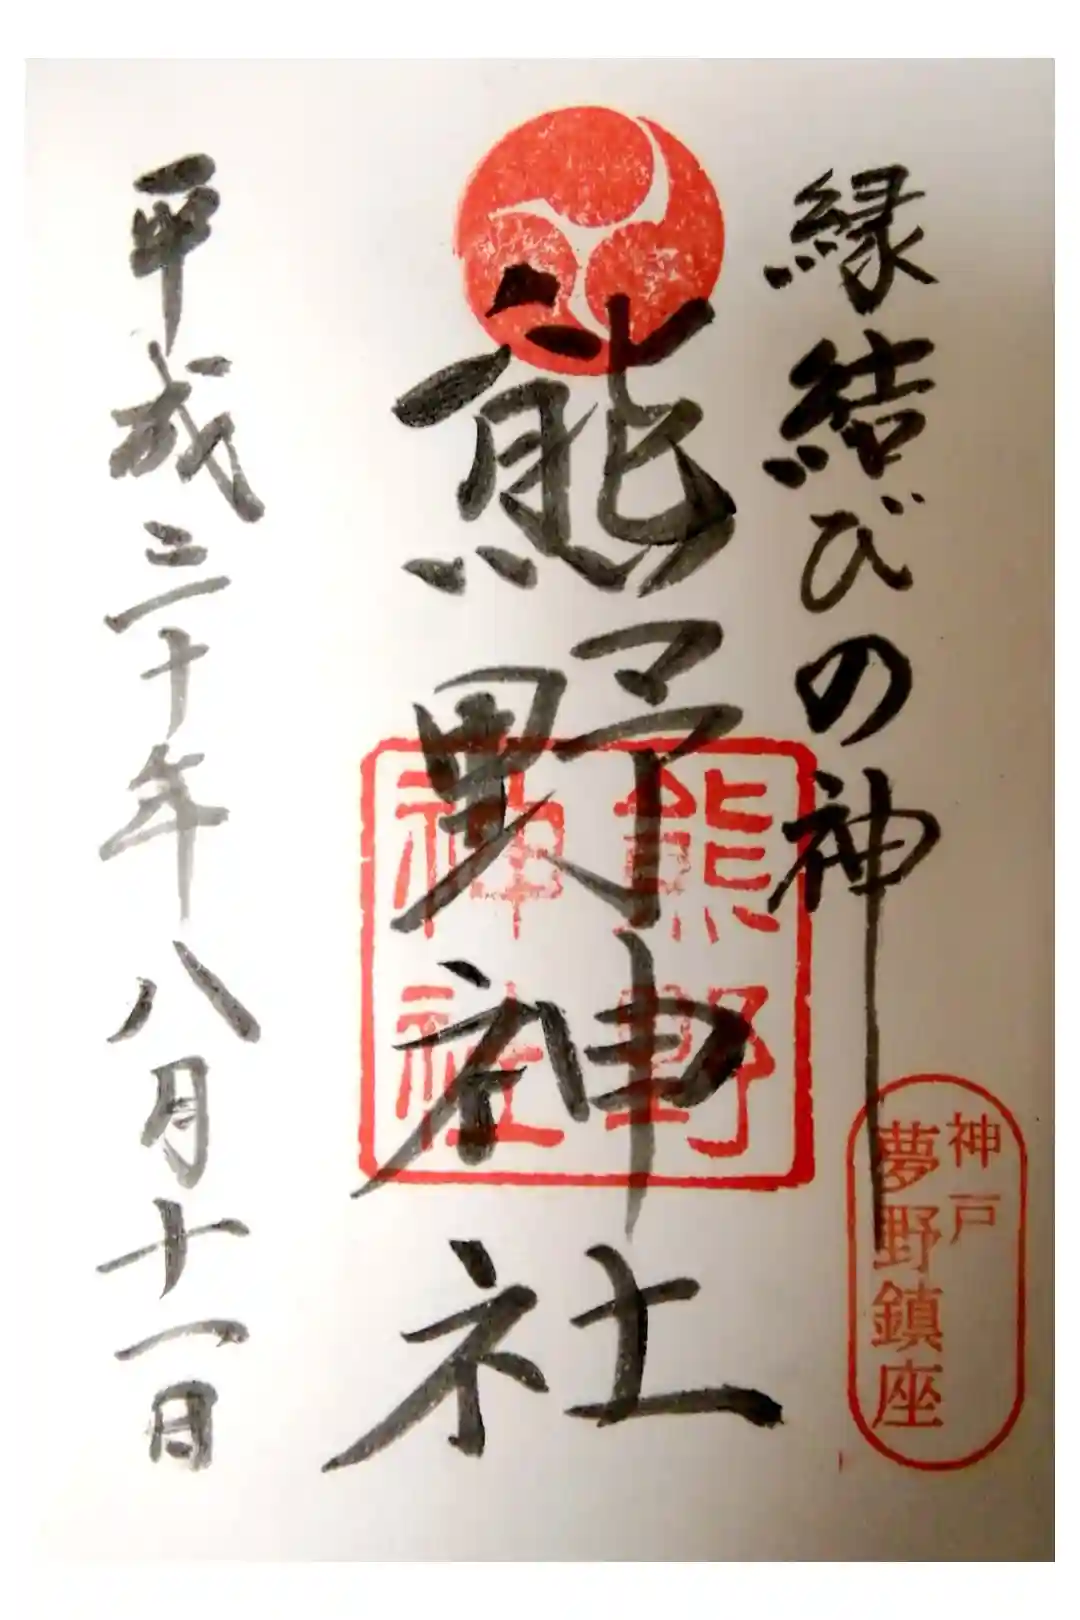 縁結びの神
神戸
夢野鎮座
熊野神社
熊野
神社
平成三十年八月十一日